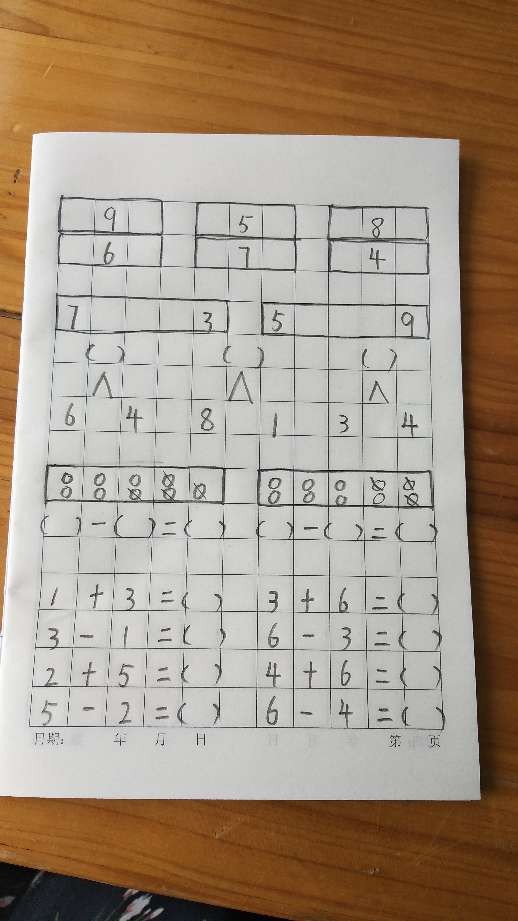 9 5 8
6 7 4
7 3 5 9
( ) ( ) ( )
6 4 8 1 3 4
( ) - ( ) = ( ) ( ) - ( ) = ( )
1 + 3 = ( ) 3 + 6 = ( )
3 - 1 = ( ) 6 - 3 = ( )
2 + 5 = ( ) 4 + 6 = ( )
5 - 2 = ( ) 6 - 4 = ( )
日期: 年 月 日 第 页